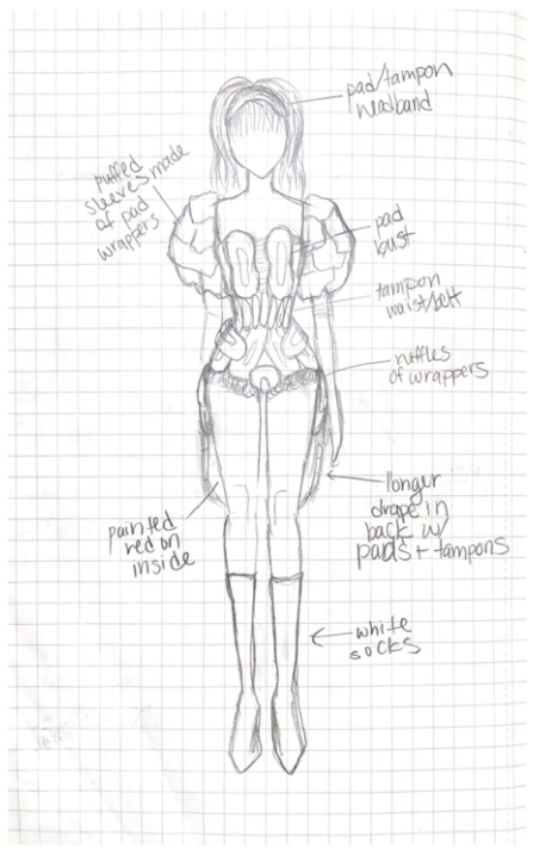 pad/tampon
headband
puffed
sleeves made
of pad
wrappers
pad
bust
tampon
waist/belt
ruffles
of wrappers
longer
drape in
back w/
pads + tampons
painted
red on
inside
white
socks